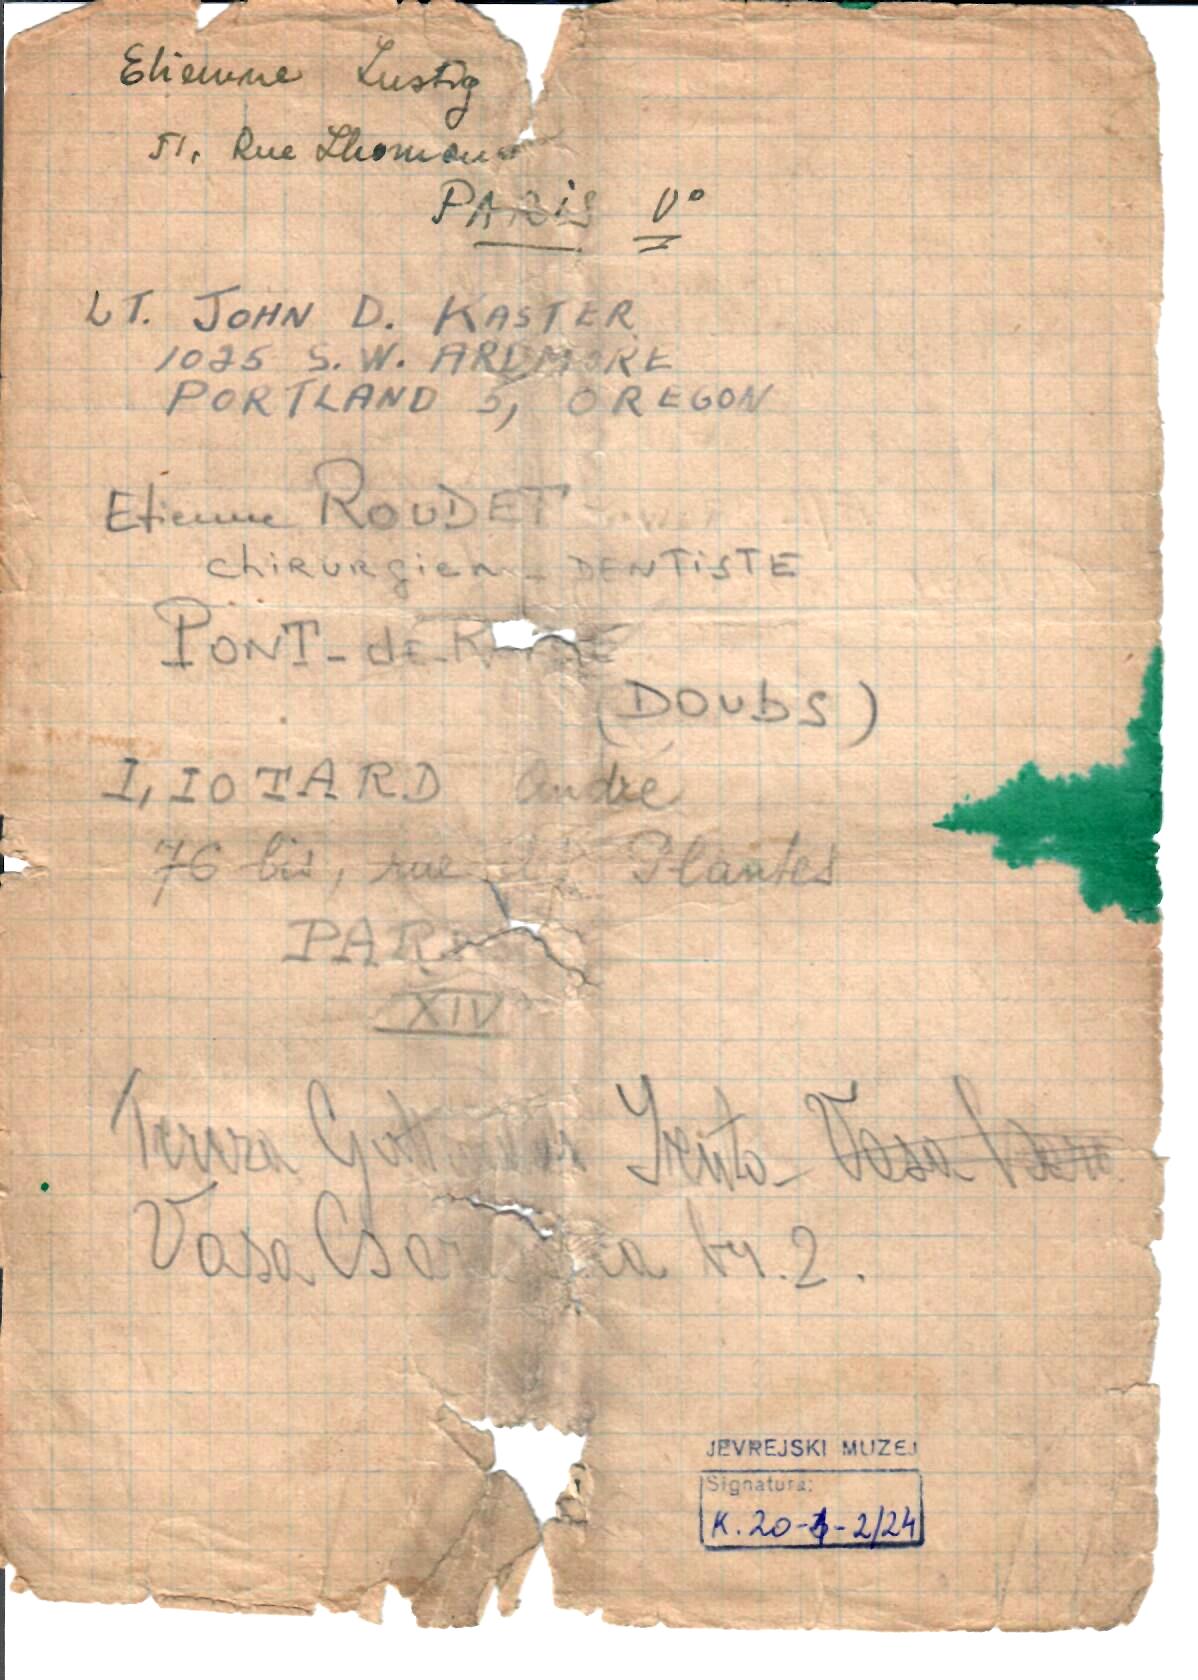 Etienne Lustig
51, Rue Lhomond
PARIS V°
LT. JOHN D. KASTER
1025 S.W. ARDMORE
PORTLAND 5, OREGON
Etienne ROUDET
chiRURgien - DENTiSTE
PONT - de - R
(DOUbS)
LIOTARD André
76 bis, rue des Plantes
PARIS
XIV
Tereza Senta - Vasa
Vasa br. 2.
JEVREJSKI MUZEJ
Signatura:
K. 20-4-2/24